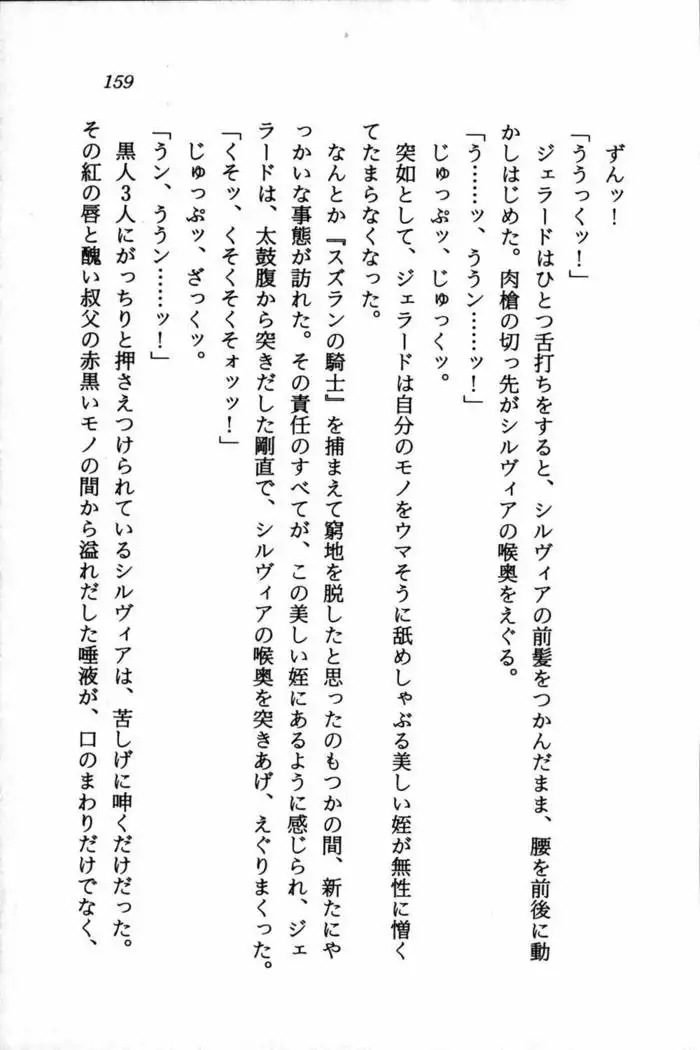 159
ずんッ！
「ううっくッ！」
ジェラードはひとつ舌打ちをすると、シルヴィアの前髪をつかんだまま、腰を前後に動
かしはじめた。肉槍の切っ先がシルヴィアの喉奥をえぐる。
「う……ッ、ううン……ッ！」
じゅっぷッ、じゅっくッ。
突如として、ジェラードは自分のモノをウマそうに舐めしゃぶる美しい姪が無性に憎く
てたまらなくなった。
なんとか『スズランの騎士』を捕まえて窮地を脱したと思ったのもつかの間、新たにや
っかいな事態が訪れた。その責任のすべてが、この美しい姪にあるように感じられ、ジェ
ラードは、太鼓腹から突きだした剛直で、シルヴィアの喉奥を突きあげ、えぐりまくった。
「くそッ、くそくそくそォッッ！」
じゅっぷッ、ざっくッ。
「うン、ううン……ッ！」
黒人３人にがっちりと押さえつけられているシルヴィアは、苦しげに呻くだけだった。
その紅の唇と醜い叔父の赤黒いモノの間から溢れだした唾液が、口のまわりだけでなく、